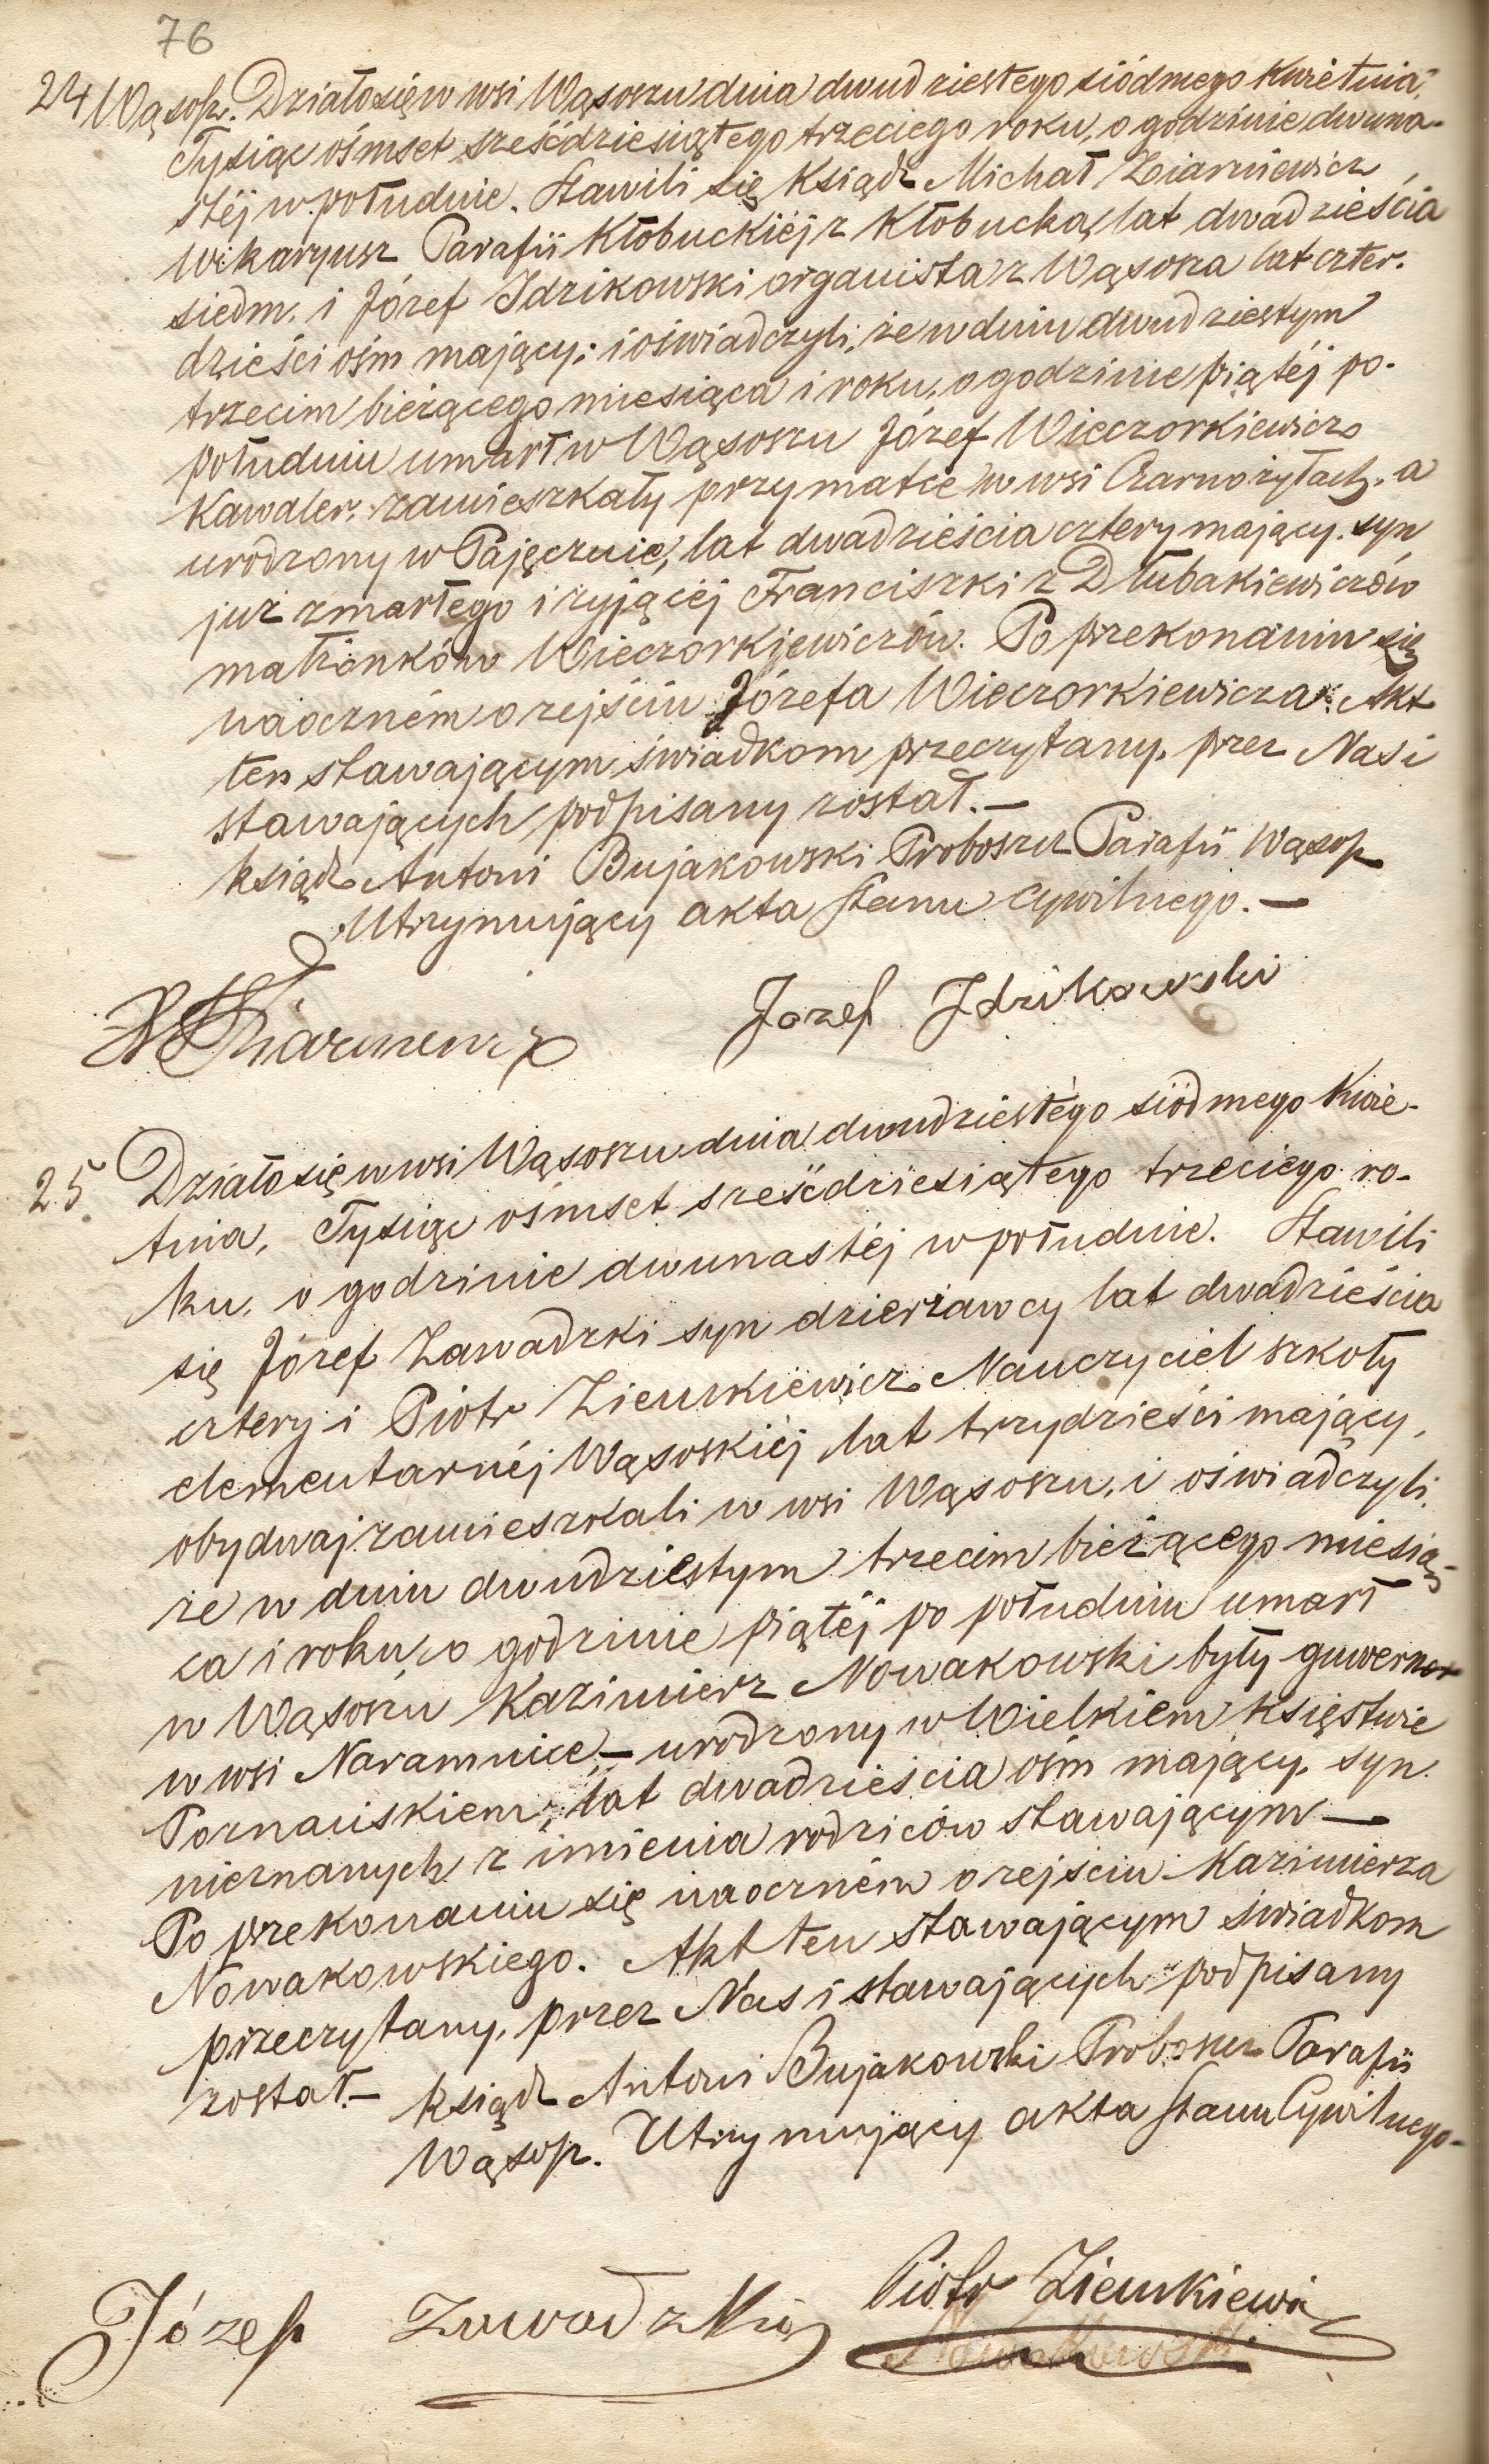 76
24 Wąsosz. Działo się w wsi Wąsoszu dnia dwudziestego siódmego Kwietnia,
Tysiąc ośmset sześćdziesiątego trzeciego roku, o godzinie dwuna-
stéj w południe. Stawili się Ksiądz Michał Ziarniewicz
Wikaryusz Parafii Kłobuckiéj z Kłobucka, lat dwadzieścia
siedm. i Józef Idzikowski organista z Wąsosza lat czter-
dzieści ośm mający; i oświadczyli, że w dniu dwudziestym
trzecim bieżącego miesiąca i roku, o godzinie piątéj po-
południu umarł w Wąsoszu Józef Wieczorkiewicz
Kawaler, zamieszkały przy matce w wsi Czarnożyłach, a
urodzony w Pajęcznie, lat dwadzieścia cztery mający. syn
już zmarłego i żyjącéj Franciszki z Dłubakiewiczów
małżonków Wieczorkiewiczów. Po przekonaniu się
naoczném o zejściu Józefa Wieczorkiewicza. Akt
ten stawającym świadkom przeczytany, przez Nas i
stawających podpisany został. —
Ksiądz Antoni Bujakowski Proboszcz Parafii Wąsosz
Utrzymujący akta Stanu cywilnego. —
Józef Idzikowski
25 Działo się w wsi Wąsoszu dnia dwudziestégo siódmego Kwie-
tnia, Tysiąc ośmset sześćdziesiątego trzeciego ro-
ku, o godzinie dwunastéj w południe. Stawili
się Józef Zawadzki syn dzierżawcy lat dwadzieścia
cztery i Piotr Zienkiewicz Nauczyciel szkoły
elementarnéj Wąsoskiéj lat trzydzieści mający,
obydwaj zamieszkali w wsi Wąsoszu, i oświadczyli,
że w dniu dwudziestym trzecim bieżącego miesią-
ca i roku, o godzinie piątéj po południu umarł
w Wąsoszu Kazimierz Nowakowski były guwerner
w wsi Naramnice, — urodzony w Wielkiem Księstwie
Poznańskiem, lat dwadzieścia ośm mający, syn
nieznanych z imienia rodziców stawającym —
Po przekonaniu się naoczném o zejściu Kazimierza
Nowakowskiego. Akt ten stawającym świadkom
przeczytany, przez Nas i stawających podpisany
został. — Ksiądz Antoni Bujakowski Proboszcz Parafii
Wąsosz. Utrzymujący akta Stanu Cywilnego —
Józef Zawadzki Piotr Zienkiewicz